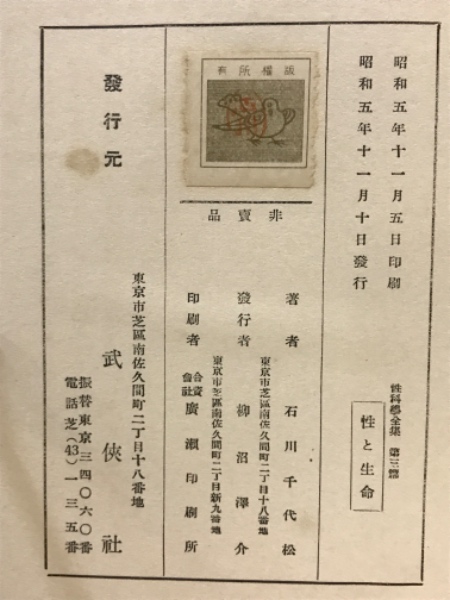 昭和五年十一月五日印刷
昭和五年十一月十日發行
性科學全集 第三篇
性と生命
版權所有
非賣品
著者 石川千代松
東京市芝區南佐久間町二丁目十八番地
發行者 柳沼澤介
東京市芝區南佐久間町二丁目新九番地
印刷者 合資會社 廣瀬印刷所
發行元
東京市芝區南佐久間町二丁目十八番地
武俠社
振替東京三四〇六〇番
電話芝(43)一一三五番